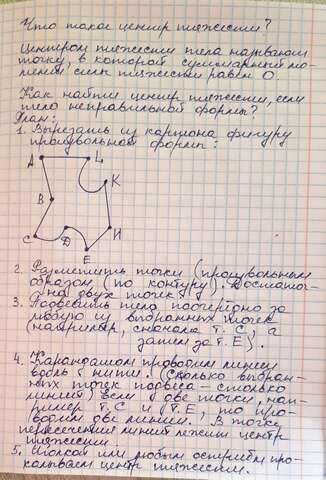 Что такое центр тяжести?
Центром тяжести тела называют
точку, в которой суммарный мо-
мент силы тяжести равен 0.
Как найти центр тяжести, если
тело неправильной формы?
План:
1. Вырезать из картона фигуру
произвольной формы:
A
L
K
B
C
D
И
E
2. Разметить точки (произвольным
образом (по контуру). Достаточ-
но двух точек)
3. Подвесить тело поочерёдно за
любую из выбранных точек
(например, сначала т. С, а
затем за т. Е).
4. Карандашом проводим линии
вдоль нити. (Сколько выбран-
ных точек подвеса – столько
линий) если две точки, нап-
ример т. С и т. Е, то про-
водим две линии. В точке
пересечения линий лежит центр
тяжести
5. Иголкой или любым острием про-
калываем центр тяжести.